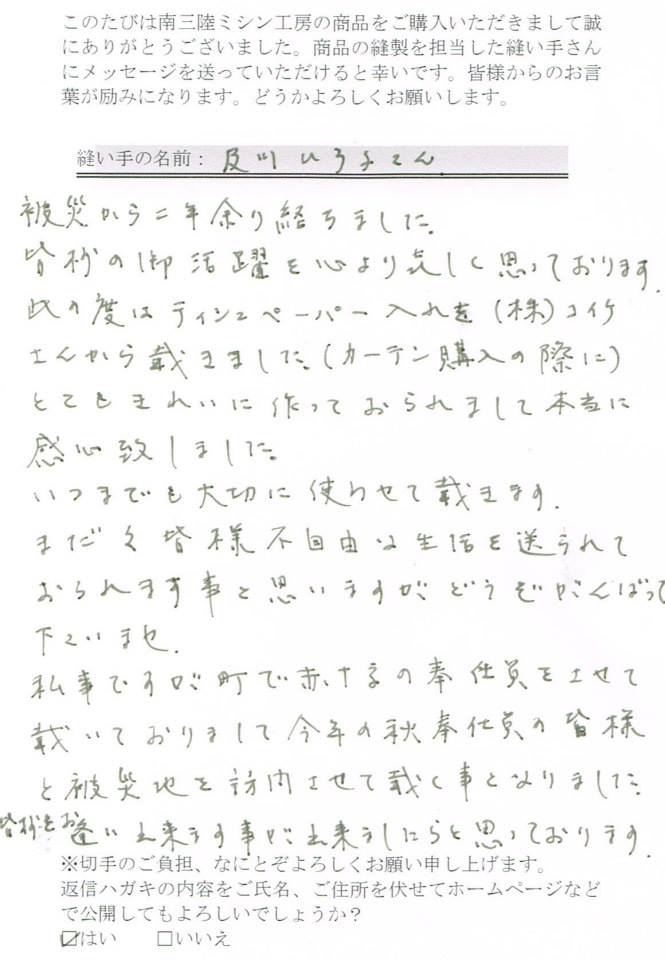 このたびは南三陸ミシン工房の商品をご購入いただきまして誠
にありがとうございました。商品の縫製を担当した縫い手さん
にメッセージを送っていただけると幸いです。皆様からのお言
葉が励みになります。どうかよろしくお願いします。
縫い手の名前： 及川ひろ子さん
被災から二年余り経ちました。
皆様の御活躍を心より嬉しく思っております。
此の度はティシュペーパー入れを(株)コイケ
さんから戴きました。(カーテン購入の際に)
とてもきれいに作っておられまして本当に
感心致しました。
いつまでも大切に使わせて戴きます。
まだ々皆様不自由な生活を送られて
おられます事と思いますがどうぞがんばって
下さいませ。
私事ですが町で赤十字の奉仕員をさせて
戴いておりまして今年の秋奉仕員の皆様
と被災地を訪問させて戴く事となりました。
皆様とお逢い出来ます事が出来ましたらと思っております。
※切手のご負担、なにとぞよろしくお願い申し上げます。
返信ハガキの内容をご氏名、ご住所を伏せてホームページなど
で公開してもよろしいでしょうか？
☑はい　□いいえ